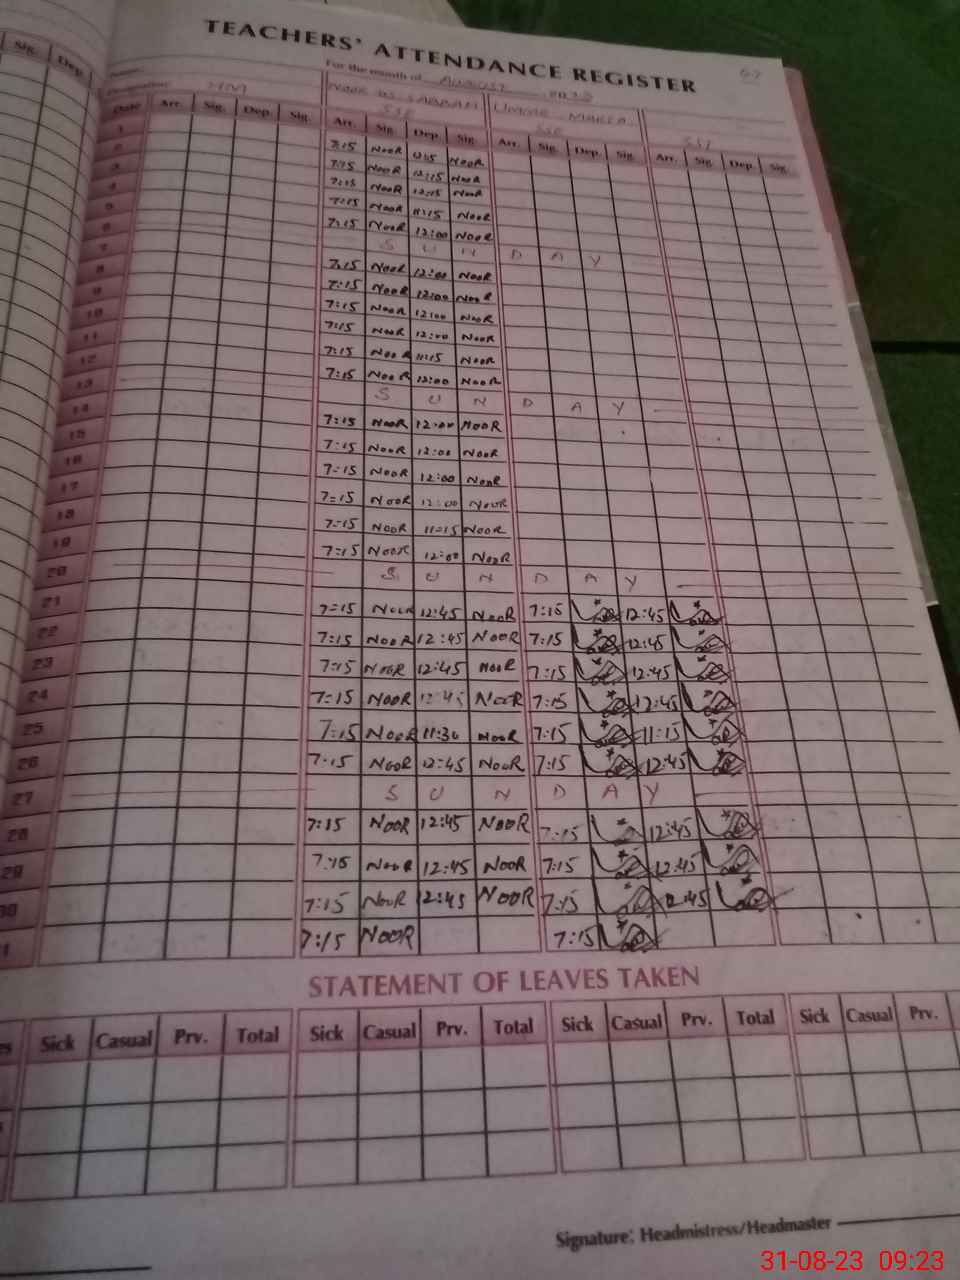 Sig. Dep.
TEACHERS' ATTENDANCE REGISTER
Name: For the month of AUGUST
Designation: UMME
SSE SSE
Date Arr. Sig. Dep. Sig. Arr. Sig. Dep. Sig. Arr. Sig. Dep. Sig. Arr. Sig. Dep. Sig.
1 7:15 NOOR NOOR
2 7:15 NOOR 12:15 NOOR
3 7:15 NOOR 12:15 NOOR
4 7:15 NOOR 11:15 NOOR
5 7:15 NOOR 12:00 NOOR
6 S U N D A Y
7 7:15 NOOR 12:00 NOOR
8 7:15 NOOR 12:00 NOOR
9 7:15 NOOR 12:00 NOOR
10 7:15 NOOR 12:00 NOOR
11 7:15 NOOR 11:15 NOOR
12 7:15 NOOR 12:00 NOOR
13 S U N D A Y
14 7:15 NOOR 12:00 NOOR
15 7:15 NOOR 12:00 NOOR
16 7:15 NOOR 12:00 NOOR
17 7:15 NOOR 12:00 NOOR
18 7:15 NOOR 11:15 NOOR
19 7:15 NOOR 12:00 NOOR
20 S U N D A Y
21 7:15 NOOR 12:45 NOOR 7:15 12:45
22 7:15 NOOR 12:45 NOOR 7:15 12:45
23 7:15 NOOR 12:45 NOOR 7:15 12:45
24 7:15 NOOR 12:45 NOOR 7:15 12:45
25 7:15 NOOR 11:30 NOOR 7:15 11:15
26 7:15 NOOR 12:45 NOOR 7:15 12:45
27 S U N D A Y
28 7:15 NOOR 12:45 NOOR 7:15 12:45
29 7:15 NOOR 12:45 NOOR 7:15 12:45
30 7:15 NOOR 12:45 NOOR 7:15 12:45
1 7:15 NOOR 7:15
STATEMENT OF LEAVES TAKEN
es Sick Casual Prv. Total Sick Casual Prv. Total Sick Casual Prv. Total Sick Casual Prv.
Signature: Headmistress/Headmaster
31-08-23 09:23